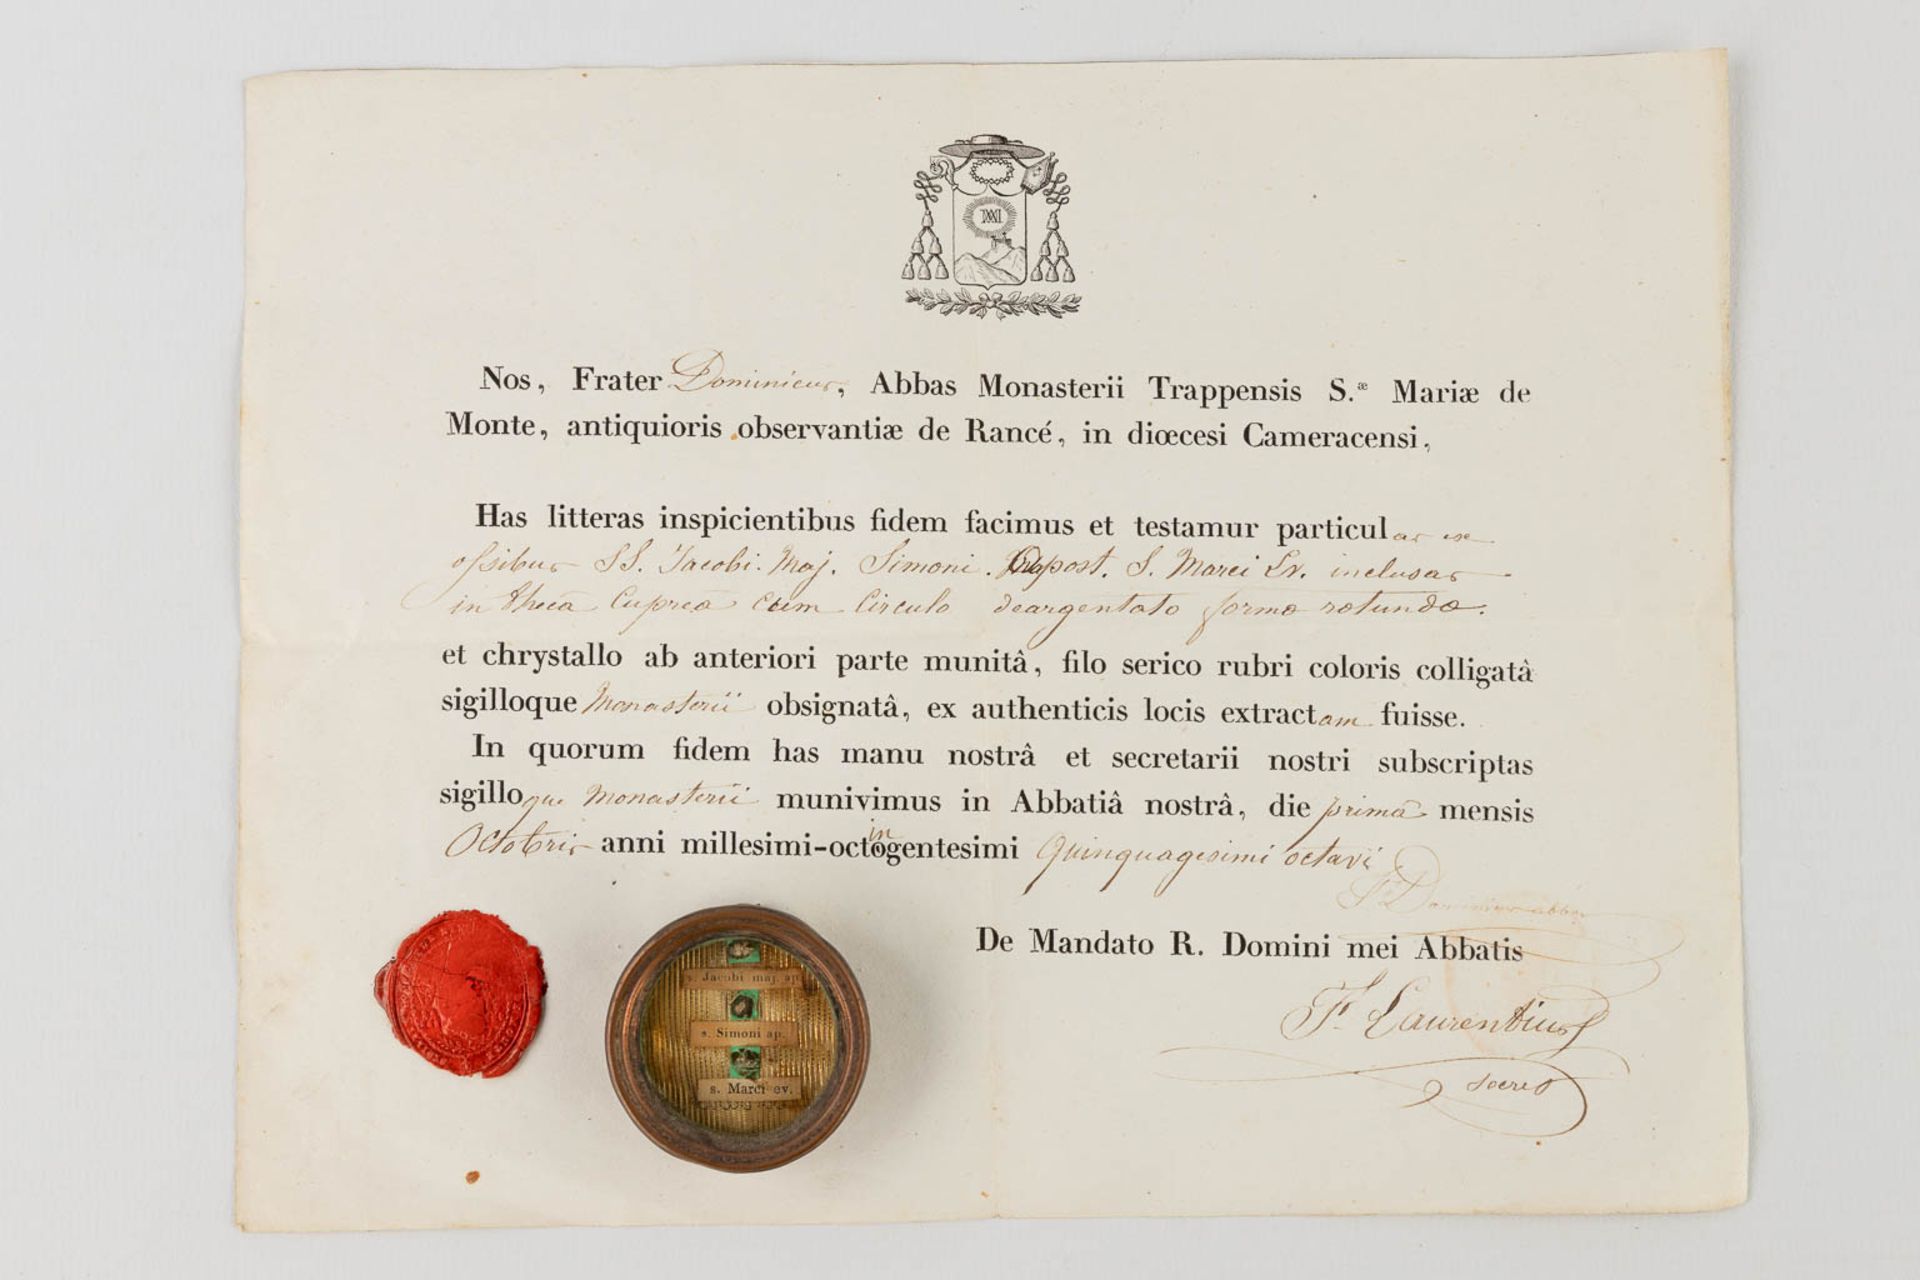 Nos, Frater Dominicus, Abbas Monasterii Trappensis S.æ Mariæ de
Monte, antiquioris observantiæ de Rancé, in diœcesi Cameracensi,
Has litteras inspicientibus fidem facimus et testamur particulas ex
ossibus SS. Jacobi. Maj. Simoni. Apost. S. Marci Ev. inclusas
in thecâ Cupreâ cum Circulo deargentato formæ rotundæ.
et chrystallo ab anteriori parte munitâ, filo serico rubri coloris colligatâ
sigilloque Monasterii obsignatâ, ex authenticis locis extractam fuisse.
In quorum fidem has manu nostrâ et secretarii nostri subscriptas
sigilloque Monasterii munivimus in Abbatiâ nostrâ, die primâ mensis
Octobris anni millesimi-octingentesimi quinquagesimi octavi
F. Dominicus abbas
De Mandato R. Domini mei Abbatis
F. Laurentius
secret
s. Jacobi maj. ap.
s. Simoni ap.
s. Marci ev.